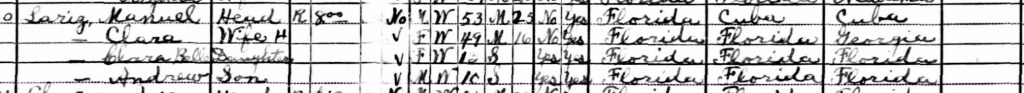 o Lariz, Manuel Head R 8.00 No M W 53 M 25 No Yes Florida Cuba Cuba
— Clara Wife H V F W 49 M 16 No Yes Florida Florida Georgia
— Clara Belle Daughter V F W 12 S Yes Yes Florida Florida Florida
— Andrew Son V M W 10 S Yes Yes Florida Florida Florida